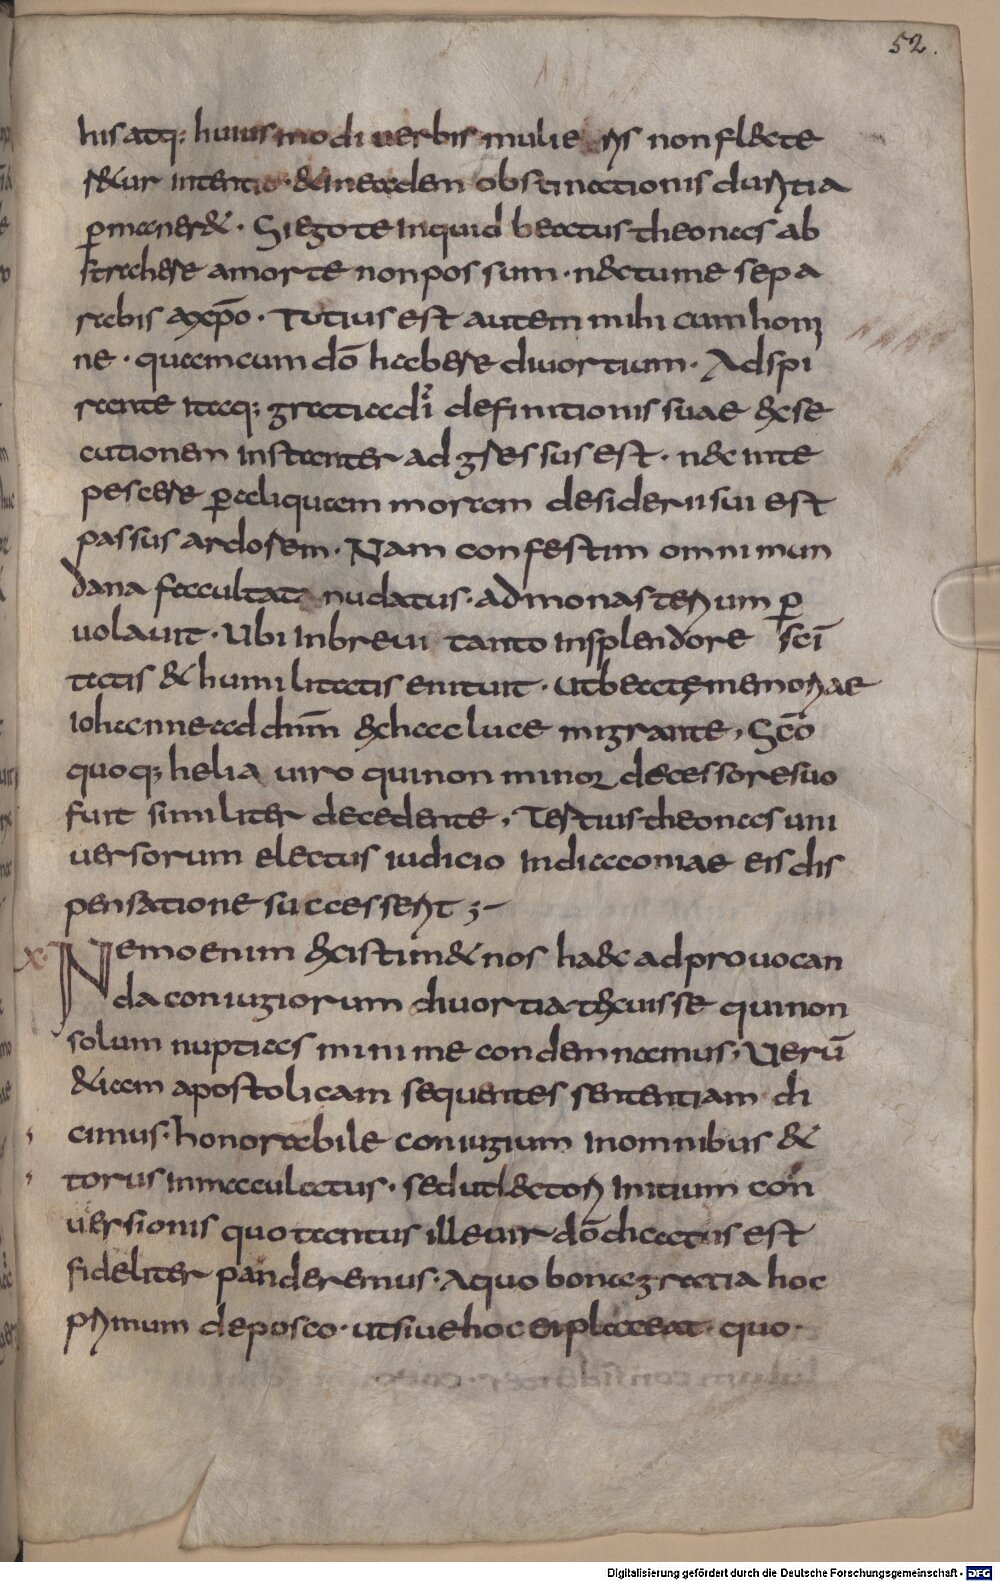 52.
his atq: huiusmodi uerbis mulieris non flecte
r&ur intentio · & in eadem obstinationis duritia
p̱maner& · Si ego te inquid beatus theonas ab
strahere a morte non possum · nec tu me sepa
rabis a xp̄o · Tutius est autem mihi cum homi
ne · quam cum dō habere diuortium · Adspi
rante itaq; gratia di definitionis suae exse
cutionem instanter adgressus est · nec inte
pescere p̱ aliquam moram desiderii sui est
passus ardorem · Nam confestim omni mun
dana facultate nudatus · ad monasterium p̱
uolauit · Ubi in breui tanto in splendore sc̄i
tatis & humilitatis enituit · ut beatę memoriae
iohanne ad dnm̄ ex hac luce migrante, Sc̄o
quoq; helia uiro qui non minor decessore suo
fuit similiter decedente, Tertius theonas uni
uersorum electus iudicio in diaconiae eis dis
pensatione successerit ;–
x· Nemo enim existim& nos haec ad prouocan
da coniugiorum diuortia texuisse qui non
solum nuptias minime condemnamus, Uerū
&iam apostolicam sequentes sententiam di
cimus · honorabile coniugium in omnibus &
torus inmaculatus · sed ut lectori initium con
uersionis quo tantus ille uir dō dicatus est
fideliter panderemus · a quo bona gratia hoc
primum deposco · ut siue hoc ei placeat · quo·
Digitalisierung gefördert durch die Deutsche Forschungsgemeinschaft - DFG